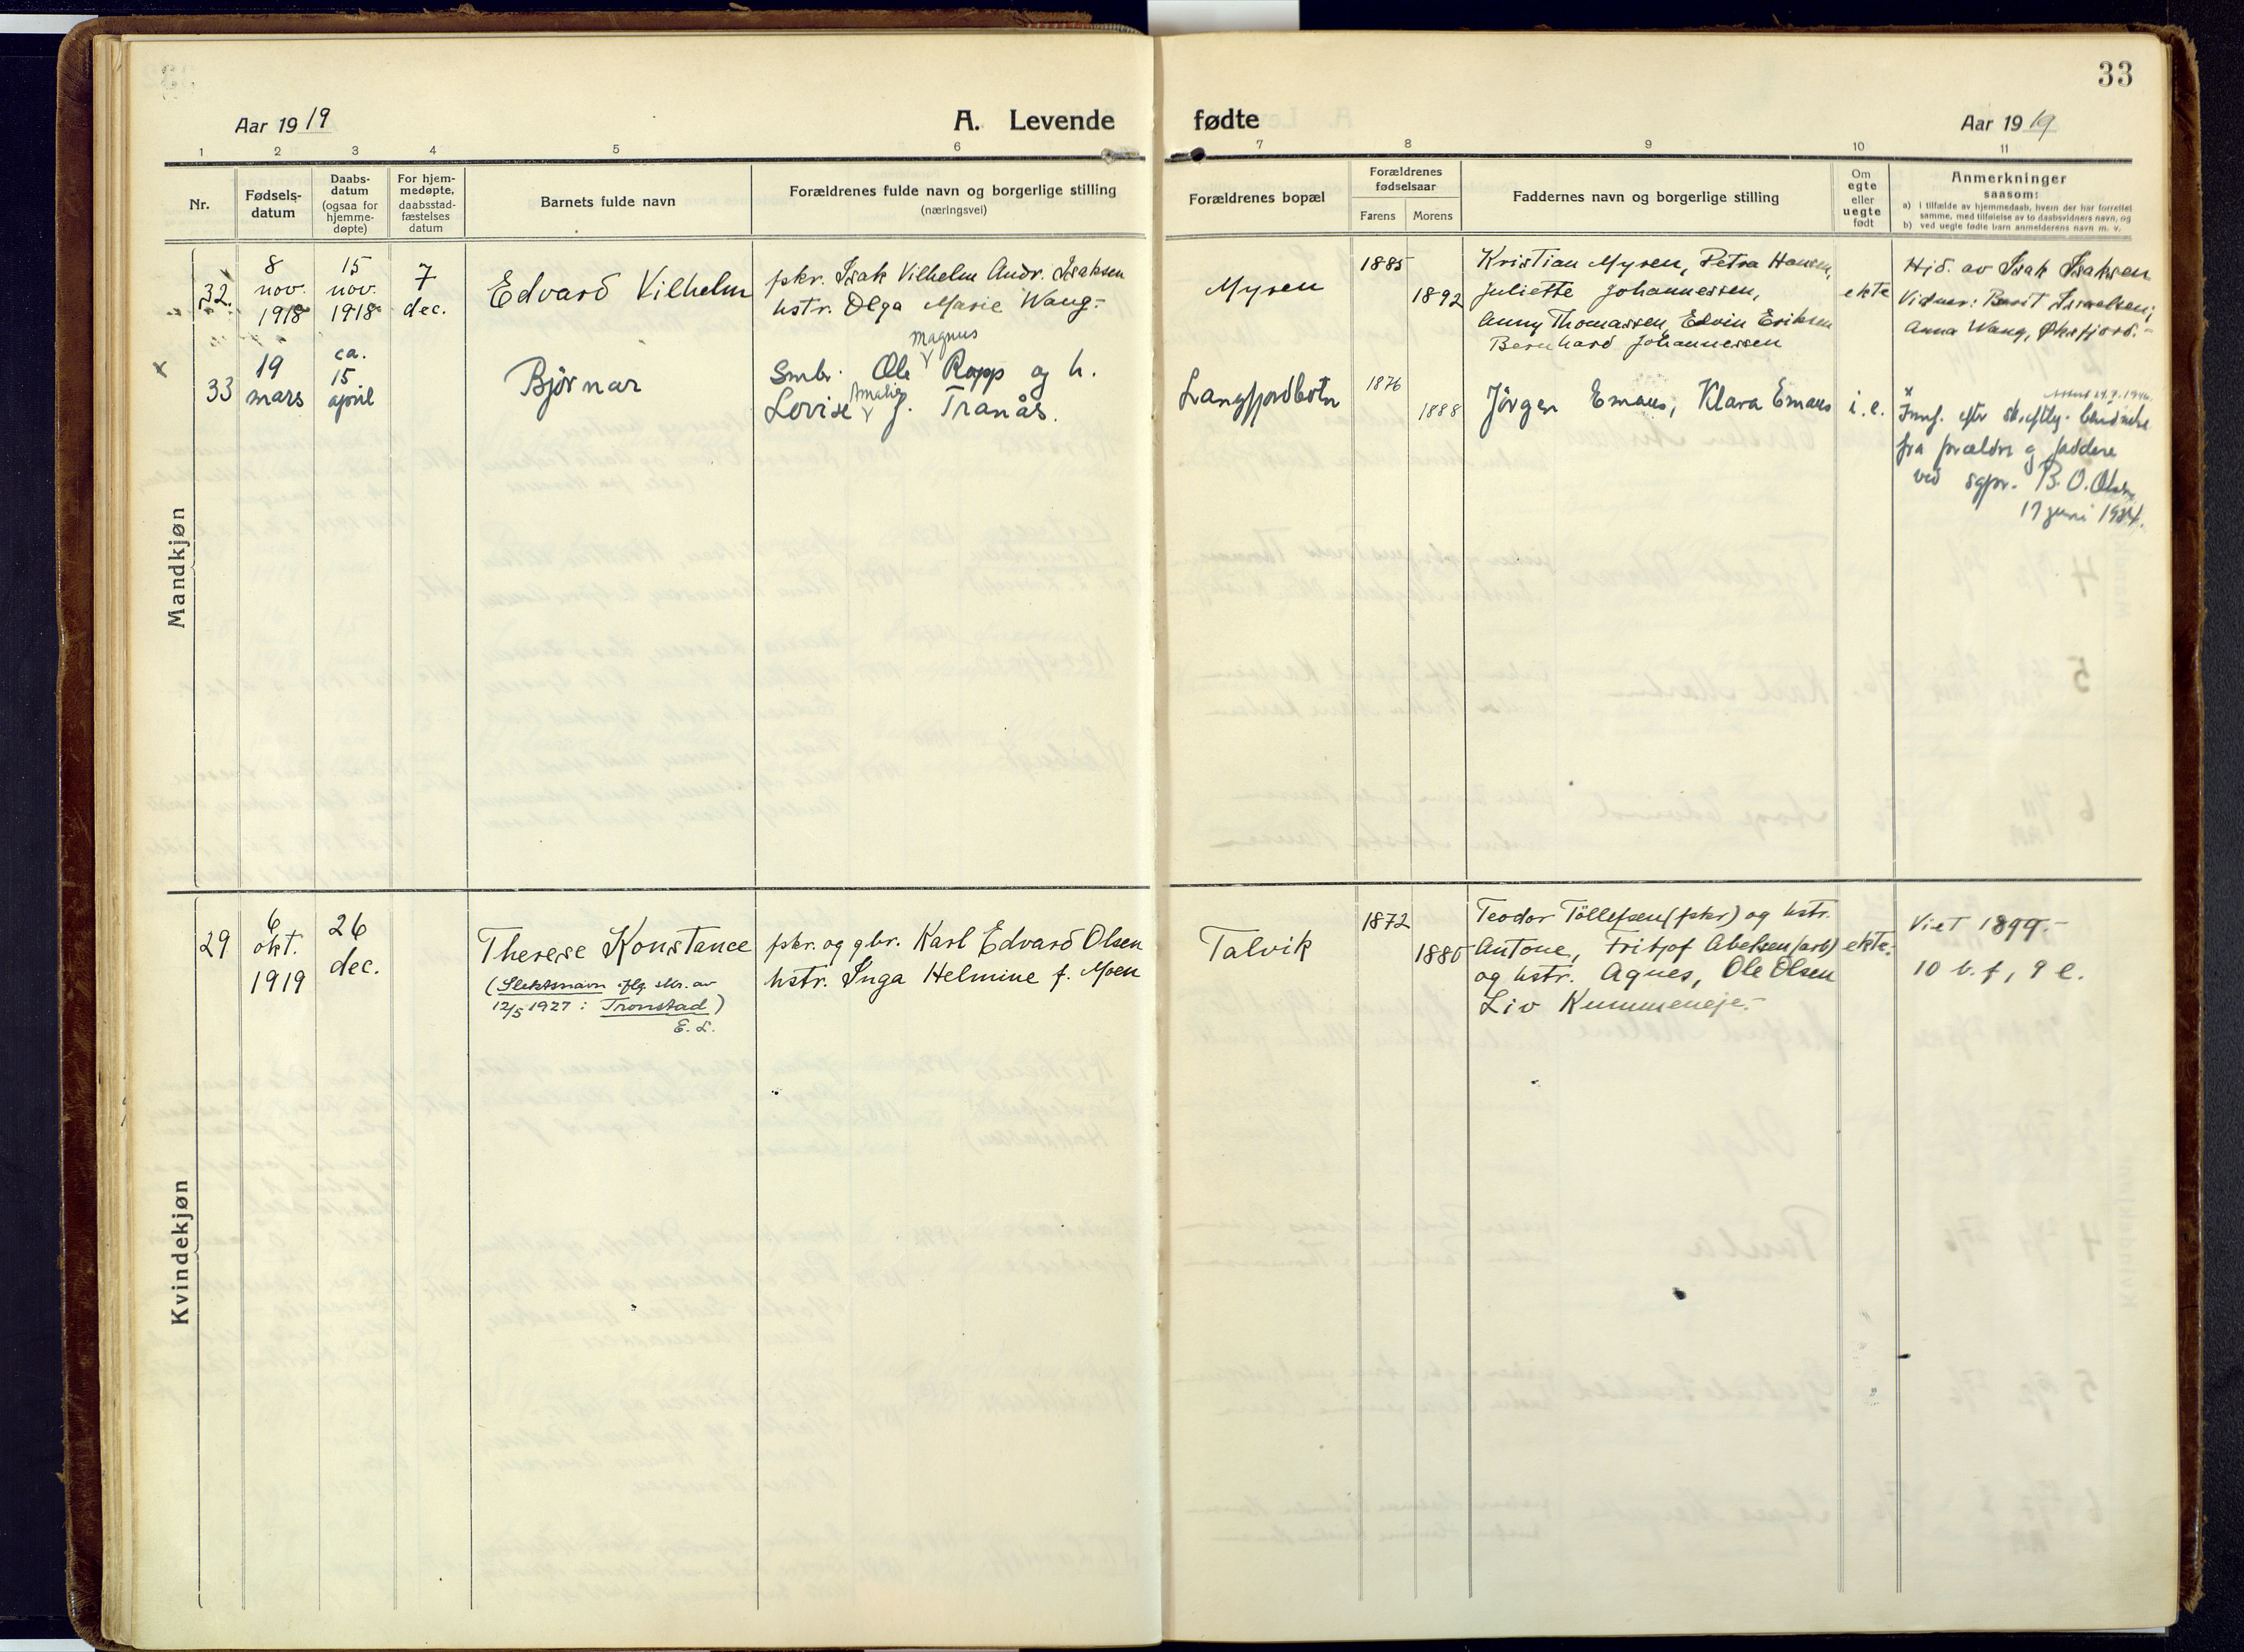 33
Aar 19 19
A. Levende fødte
Aar 19 19
1 2 3 4 5 6 7 8 9 10 11
Nr.
Fødsels-
datum
Daabs-
datum
(ogsaa for
hjemme-
døpte)
For hjem-
medøpte,
daabsstad-
fæstelses
datum
Barnets fulde navn
Forældrenes fulde navn og borgerlige stilling
(næringsvei)
Forældrenes bopæl
Forældrenes
fødselsaar
Farens
Morens
Faddernes navn og borgerlige stilling
Om
egte
eller
uegte
født
Anmerkninger
saasom:
a) i tilfælde av hjemmedaab, hvem der har forrettet
samme, med tilføielse av to daabsvidners navn, og
b) ved uegte fødte barn anmelderens navn m. v.
Mandkjøn
32.
8
nov.
1918
15
nov.
1918
7
dec.
Edvard Vilhelm
fskr. Isak Vilhelm Andr. Isaksen
hstr. Olga Marie Wang.-
Myren
1885
1892
Kristian Myren, Petra Hansen,
Juliette Johannessen,
Anny Thomassen, Edvin Eriksen
Bernhard Johannessen
ekte
Hjd. av Isak Isaksen
Vidner: Berit Israelsen,
Anna Wang, Øksfjord.-
x
33
19
mars
ca.
15
april
Bjørnar
Magnus
Smbr. Ole Rapp og h.
Amalie
Lovise f. Tranås.
Langfjordbotn
1876
1888
Jörgen Emaus, Klara Emaus
i.e.
x
Innf. efter skriftlig
fra foreldre og faddere
ved sgpr. B. O.
17 juni 1934.
Kvindekjøn
29
6
okt.
1919
26
dec.
Therese Konstance
(Slektsnavn iflg. av
12/5 1927: Tronstad)
E. L.
fskr. og gbr. Karl Edvard Olsen
hstr. Inga Helmine f. Moen
Talvik
1872
1880
Teodor Töllefsen (fskr) og hstr.
Antone, Fritjof Abelsen (arb)
og hstr. Agnes, Ole Olsen
Liv Kummeneje.-
ekte.
Viet 1899.-
10 b. f, 9 l.